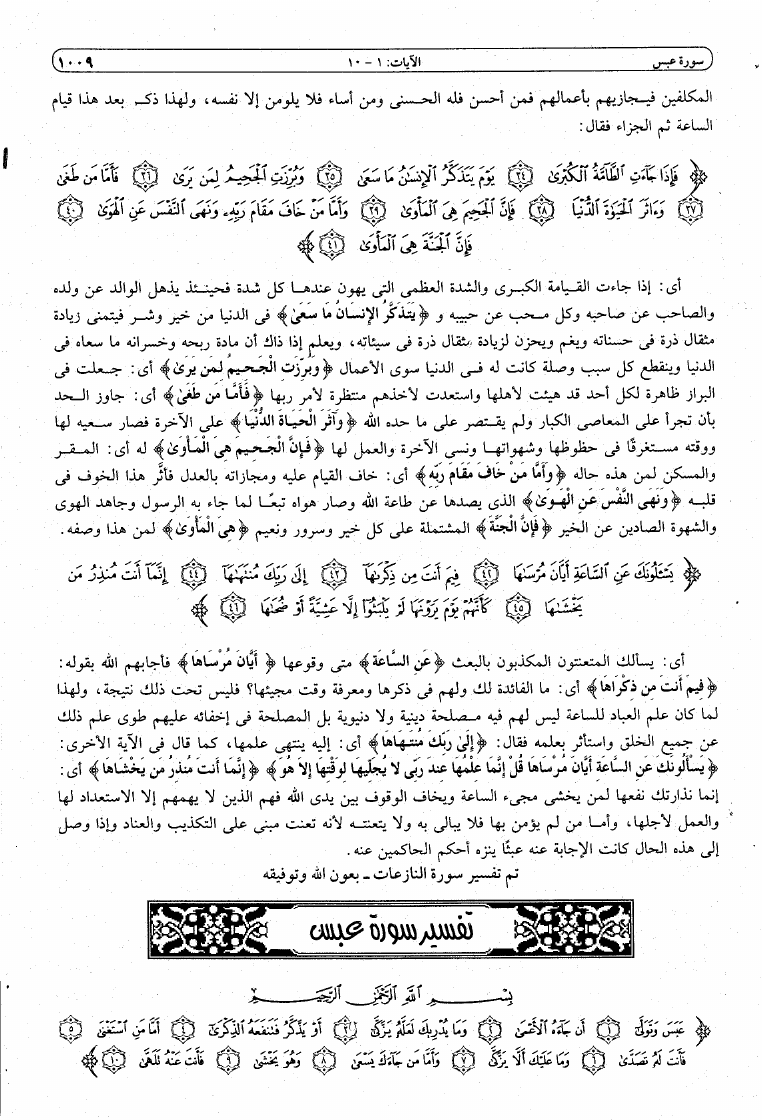 سورة عبس الآيات: ١ - ١٠ ١٠٠٩
المكلفين فيـجازيهم بأعمالهم فمن أحسن فله الحـسنى ومن أساء فلا يلومن إلا نفسه، ولهذا ذكـ بعد هذا قيام
الساعة ثم الجزاء فقال:
﴿ فَإِذَا جَآءَتِ ٱلطَّآمَّةُ ٱلْكُبْرَىٰ ٣٤ يَوْمَ يَتَذَكَّرُ ٱلْإِنسَٰنُ مَا سَعَىٰ ٣٥ وَبُرِّزَتِ ٱلْجَحِيمُ لِمَن يَرَىٰ ٣٦ فَأَمَّا مَن طَغَىٰ
٣٧ وَءَاثَرَ ٱلْحَيَوٰةَ ٱلدُّنْيَا ٣٨ فَإِنَّ ٱلْجَحِيمَ هِىَ ٱلْمَأْوَىٰ ٣٩ وَأَمَّا مَنْ خَافَ مَقَامَ رَبِّهِۦ وَنَهَى ٱلنَّفْسَ عَنِ ٱلْهَوَىٰ ٤٠
فَإِنَّ ٱلْجَنَّةَ هِىَ ٱلْمَأْوَىٰ ٤١ ﴾
أى: إذا جاءت القـيامة الكبـرى والشدة العظمى التى يهون عندهـا كل شدة فحينـئذ يذهل الوالد عن ولده
والصاحب عن صاحبه وكل مـحب عن حبيبه و ﴿يَتَذَكَّرُ الإِنسَانُ مَا سَعَىٰ﴾ فى الدنيا من خير وشـر فيتمنى زيادة
مثقال ذرة فى حسناته ويغم ويحزن لزيادة مثقال ذرة فى سيئاته، ويعلم إذا ذاك أن مادة ربحه وخسرانه ما سعاه فى
الدنيا وينقطع كل سبب وصلة كانت له فـى الدنيا سوى الأعمال ﴿وَبُرِّزَتِ الْجَـحِيمُ لِمَن يَرَىٰ﴾ أى: جـعلت فى
البراز ظاهرة لكل أحد قد هيئت لأهلها واستعدت لأخذهم منتظرة لأمر ربها ﴿فَأَمَّا مَن طَغَىٰ﴾ أى: جاوز الـحد
بأن تجرأ على المعاصى الكبار ولم يقـتصر على ما حده الله ﴿وَآثَرَ الْحَيَاةَ الدُّنْيَا﴾ على الآخرة فصار سـعيه لها
ووقته مستـغرقًا فى حظوظها وشهواتهـا ونسى الآخرة والعمل لها ﴿فَـإِنَّ الْجَـحِيمَ هِىَ الْمَأْوَىٰ﴾ له أى: المـقـر
والمسكن لمن هذه حاله ﴿وَأَمَّا مَنْ خَافَ مَقَامَ رَبِّهِ﴾ أى: خاف القيام عليه ومجازاته بالعدل فأثَّر هذا الخوف فى
قلبـه ﴿وَنَهَى النَّفْسَ عَنِ الْهَـوَىٰ﴾ الذى يصدها عن طاعة الله وصار هواه تبعًا لما جاء به الرسول وجاهد الهوى
والشهوة الصادين عن الخير ﴿فَإِنَّ الْجَنَّةَ﴾ المشتملة على كل خير وسرور ونعيم ﴿هِىَ الْمَأْوَىٰ﴾ لمن هذا وصفه.
﴿ يَسْـَٔلُونَكَ عَنِ ٱلسَّاعَةِ أَيَّانَ مُرْسَىٰهَا ٤٢ فِيمَ أَنتَ مِن ذِكْرَىٰهَآ ٤٣ إِلَىٰ رَبِّكَ مُنتَهَىٰهَآ ٤٤ إِنَّمَآ أَنتَ مُنذِرُ مَن
يَخْشَىٰهَا ٤٥ كَأَنَّهُمْ يَوْمَ يَرَوْنَهَا لَمْ يَلْبَثُوٓا۟ إِلَّا عَشِيَّةً أَوْ ضُحَىٰهَا ٤٦ ﴾
أى: يسألك المتعنتون المكذبون بالبعث ﴿عَنِ السَّاعَةِ﴾ متى وقوعها ﴿ أَيَّانَ مُرْسَاهَا﴾ فأجابهم الله بقوله:
﴿فِيمَ أَنتَ مِن ذِكْرَاهَا﴾ أى: ما الفائدة لك ولهم فى ذكرها ومعرفة وقت مجيئها؟ فليس تحت ذلك نتيجة، ولهذا
لما كان علم العباد للساعة ليس لهم فيه مـصلحة دينية ولا دنيوية بل المصلحة فى إخفائه عليهم طوى علم ذلك
عن جميع الخلق واستأثر بعلمه فقال: ﴿إِلَىٰ رَبِّكَ مُنتَـهَاهَا﴾ أى: إليه ينتهى علمها، كما قال فى الآية الأخرى:
﴿يَسْأَلُونَكَ عَنِ السَّاعَةِ أَيَّانَ مُرْسَاهَا قُلْ إِنَّمَا عِلْمُهَا عِندَ رَبِّى لا يُجَلِّيهَا لِوَقْتِهَا إِلا هُوَ﴾ ﴿إِنَّمَا أَنتَ مُنذِرُ مَن يَخْشَاهَا﴾ أى:
إنما نذارتك نفعها لمن يخشى مجىء الساعة ويخاف الوقوف بين يدى الله فهم الذين لا يهمهم إلا الاستعداد لها
والعمل لأجلها، وأمـا من لم يؤمن بها فلا يبالى به ولا يتعنتـه لأنه تعنت مبنى على التكذيب والعناد وإذا وصل
إلى هذه الحال كانت الإجابة عنه عبثًا ينزه أحكم الحاكمين عنه.
تم تفسير سورة النازعات ـ بعون الله وتوفيقه
تفسير سورة عبس
بِسْمِ ٱللَّهِ ٱلرَّحْمَٰنِ ٱلرَّحِيمِ
﴿ عَبَسَ وَتَوَلَّىٰٓ ١ أَن جَآءَهُ ٱلْأَعْمَىٰ ٢ وَمَا يُدْرِيكَ لَعَلَّهُۥ يَزَّكَّىٰٓ ٣ أَوْ يَذَّكَّرُ فَتَنفَعَهُ ٱلذِّكْرَىٰٓ ٤ أَمَّا مَنِ ٱسْتَغْنَىٰ ٥
فَأَنتَ لَهُۥ تَصَدَّىٰ ٦ وَمَا عَلَيْكَ أَلَّا يَزَّكَّىٰ ٧ وَأَمَّا مَن جَآءَكَ يَسْعَىٰ ٨ وَهُوَ يَخْشَىٰ ٩ فَأَنتَ عَنْهُ تَلَهَّىٰ ١٠ ﴾